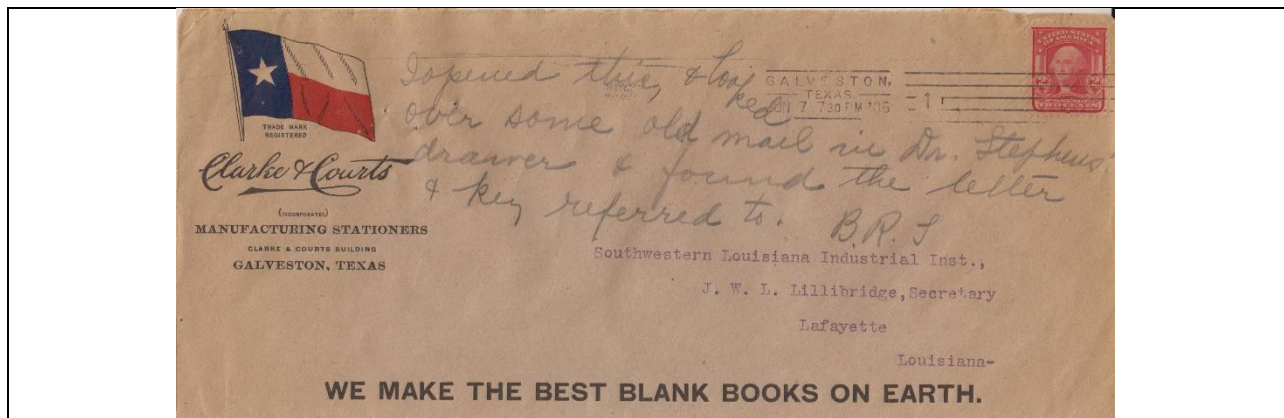 TRADE MARK
REGISTERED
Clarke & Courts
(INCORPORATED)
MANUFACTURING STATIONERS
CLARKE & COURTS BUILDING
GALVESTON, TEXAS
I opened this, & looked
over some old mail in Dr. Stephens'
drawer & found the letter
& key referred to. B.R.S
GALVESTON,
TEXAS
7 7 30 PM
1
UNITED STATES
OF AMERICA
2 2
Southwestern Louisiana Industrial Inst.,
J. W. L. Lillibridge,Secretary
Lafayette
Louisiana-
WE MAKE THE BEST BLANK BOOKS ON EARTH.